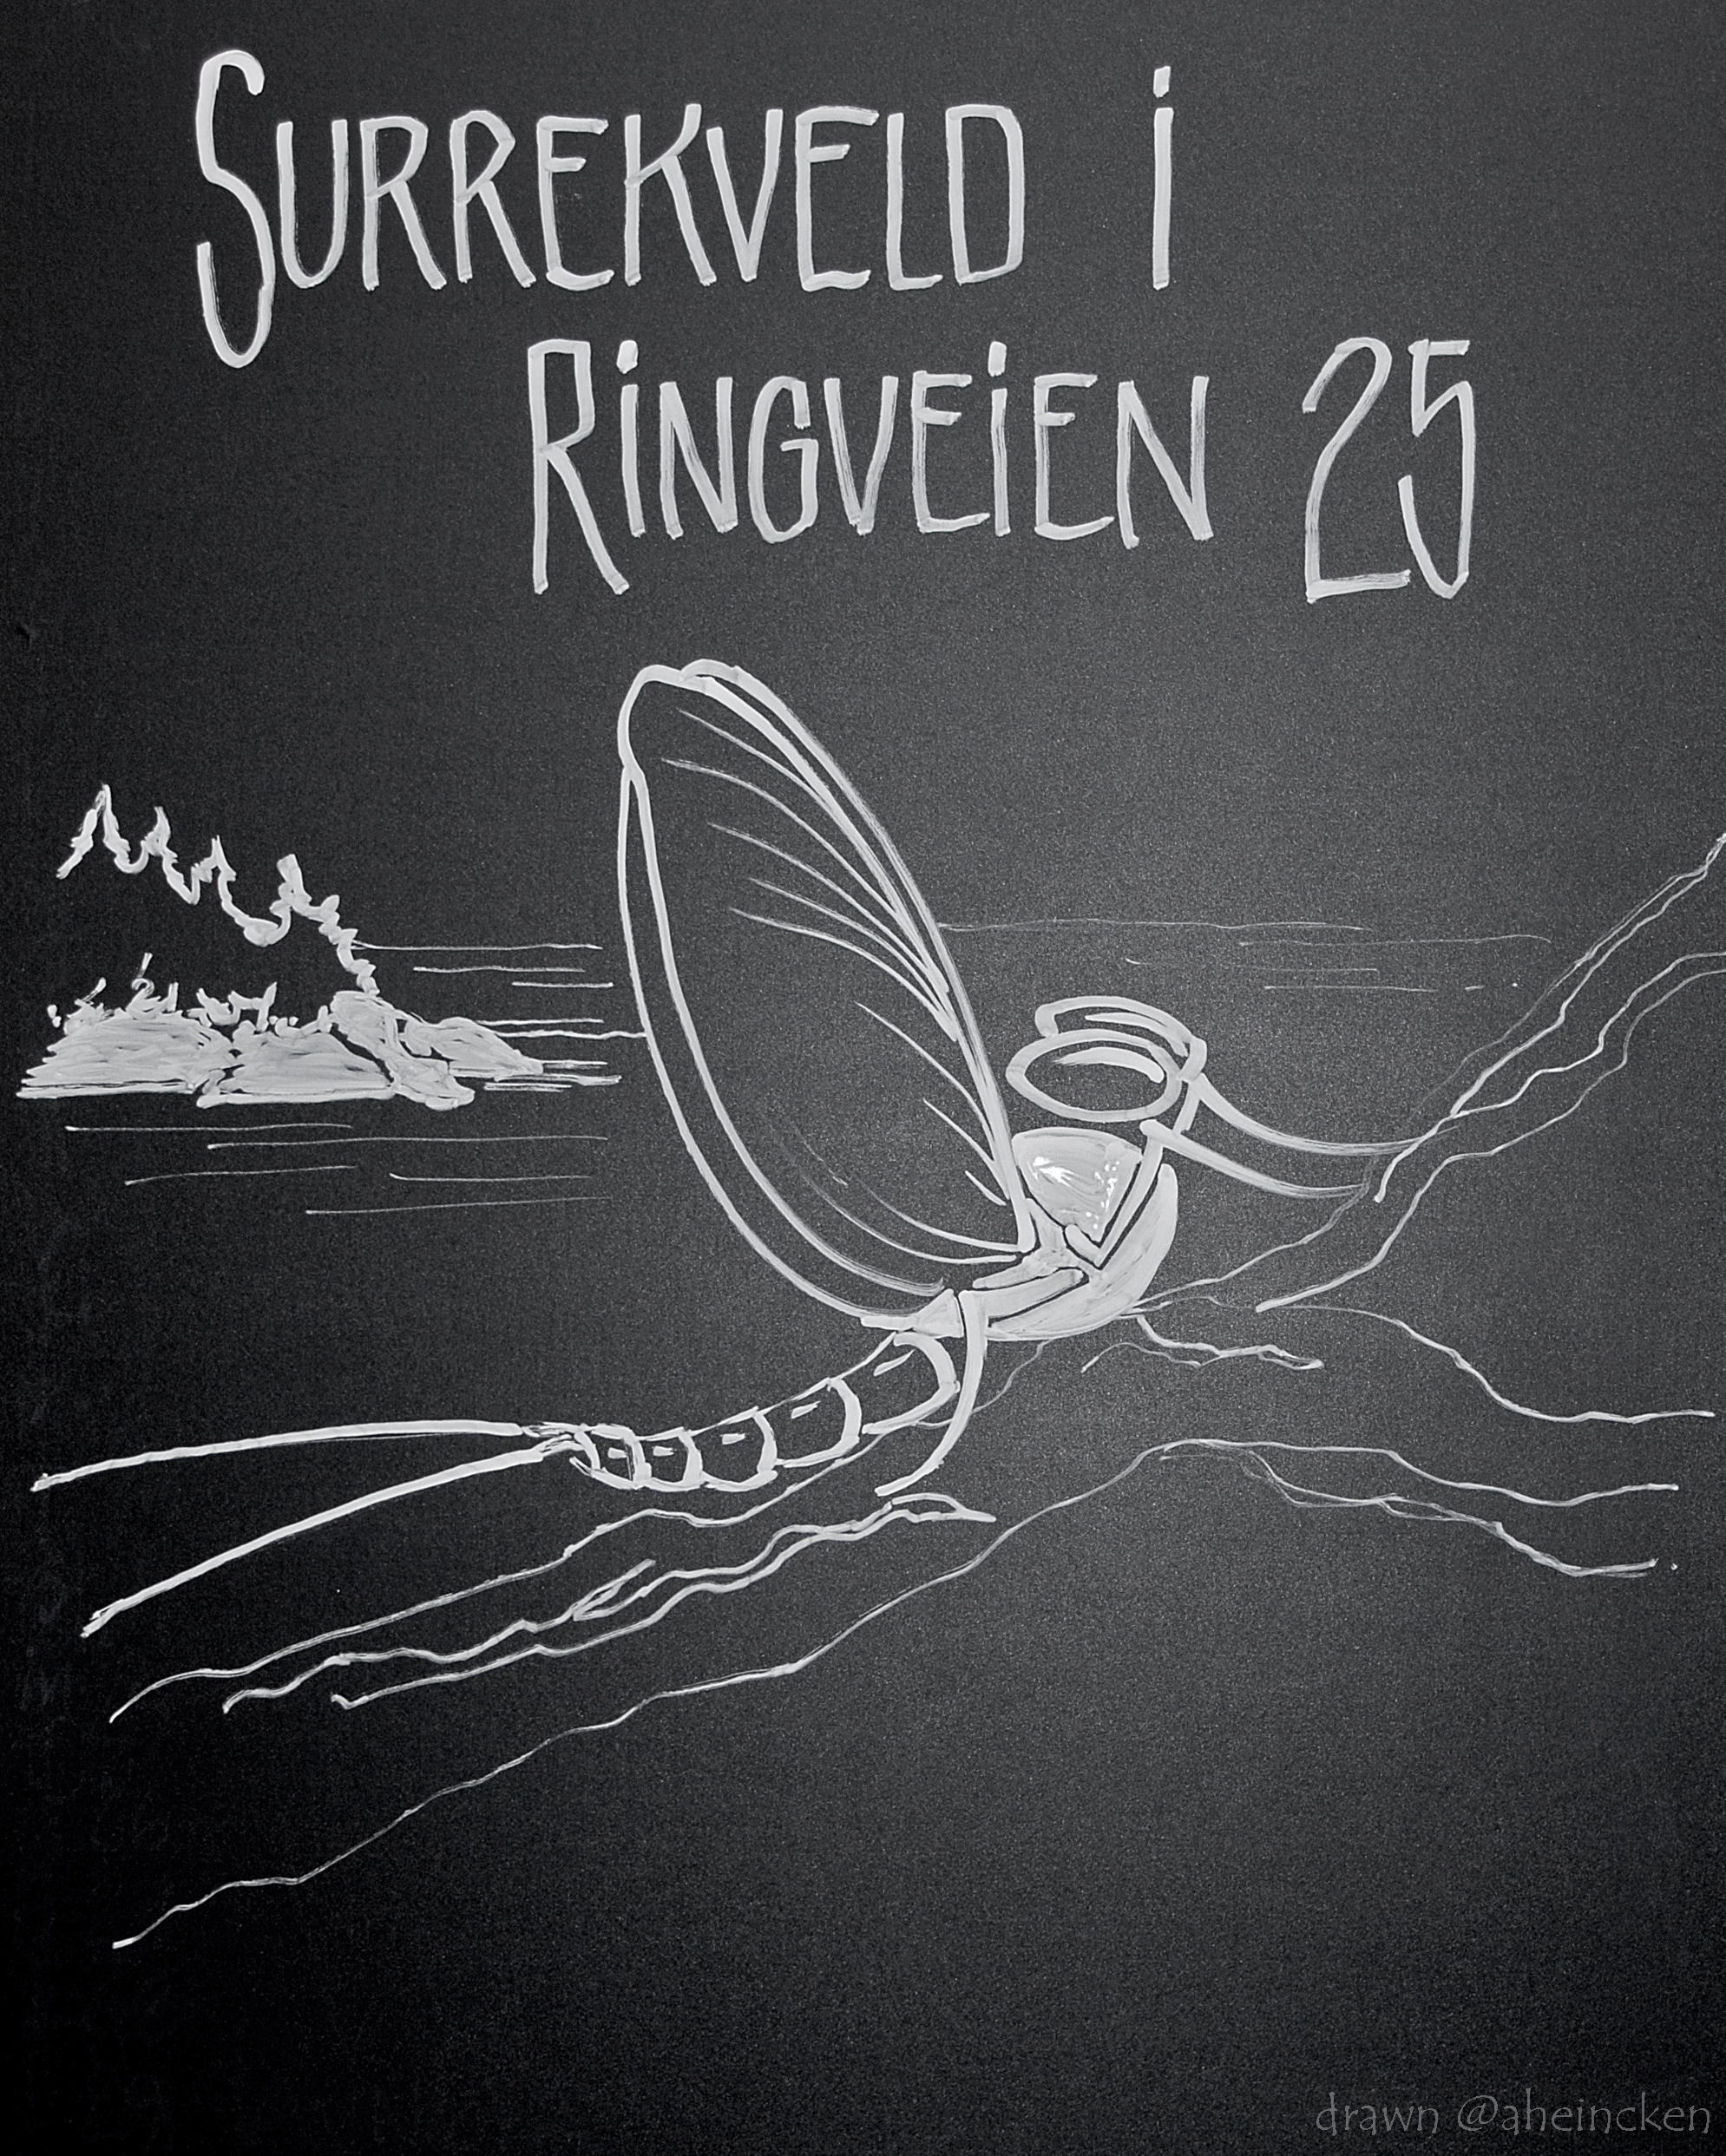 SURREKVELD i
RiNGVEiEN 25
drawn @aheincken